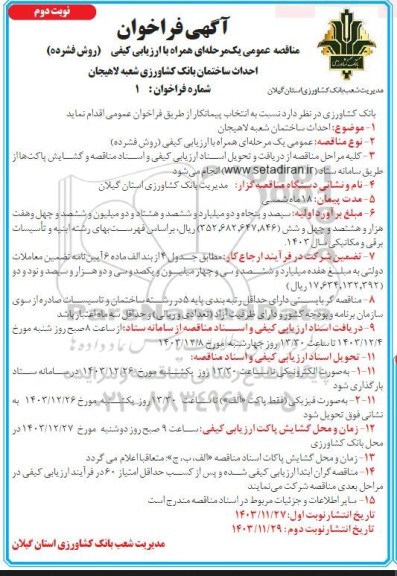 نوبت دوم
آگهی فراخوان
مناقصه عمومی یک‌مرحله‌ای همراه با ارزیابی کیفی (روش فشرده)
احداث ساختمان بانک کشاورزی شعبه لاهیجان
شماره فراخوان: ۱
بانک کشاورزی
مدیریت شعب بانک کشاورزی استان گیلان
بانک کشاورزی در نظر دارد نسبت به انتخاب پیمانکار از طریق فراخوان عمومی اقدام نماید
۱- موضوع: احداث ساختمان شعبه لاهیجان
۲- نوع مناقصه: عمومی یک مرحله‌ای همراه با ارزیابی کیفی (روش فشرده)
۳- کلیه مراحل مناقصه از دریافت و تحویل اسناد ارزیابی کیفی و اسناد مناقصه و گشایش پاکت‌ها از
طریق سامانه ستاد (www.setadiran.ir) انجام می‌شود
۴- نام و نشانی دستگاه مناقصه گزار: مدیریت بانک کشاورزی استان گیلان
۵- مدت پیمان: ۱۸ ماه شمسی
۶- مبلغ برآورد اولیه: سیصد و پنجاه و دو میلیارد و ششصد و هشتاد و دو میلیون و ششصد و چهل و هفت
هزار و هشتصد و چهل و شش (۳۵۲,۶۸۲,۶۴۷,۸۴۶) ریال، براساس فهرست‌بهای رشته ابنیه و تأسیسات
برقی و مکانیکی سال ۱۴۰۳
۷- تضمین شرکت در فرآیند ارجاع کار: مطابق جدول ۴ از بند الف ماده ۶ آیین نامه تضمین معاملات
دولتی به مبلغ هفده میلیارد و ششصد و سی و چهار میلیون و یکصد و سی و دو هزار و سیصد و نود و دو
(۱۷,۶۳۴,۱۳۲,۳۹۲ ریال)
۸- مناقصه گر بایستی دارای حداقل رتبه بندی پایه ۵ در رشته ساختمان و تاسیسات صادره از سوی
سازمان برنامه و بودجه کشور و دارای ظرفیت آزاد (تعدادی و ریالی) و حداقل سه ماه اعتبار باشد
۹- دریافت اسناد ارزیابی کیفی و اسناد مناقصه از سامانه ستاد: از ساعت ۸ صبح روز شنبه مورخ
۱۴۰۳/۱۲/۴ تا ساعت ۱۳:۳۰ روز چهارشنبه مورخ ۱۴۰۳/۱۲/۸
۱۱- تحویل اسناد ارزیابی کیفی و اسناد مناقصه:
۱-۱۱- به صورت الکترونیکی تا ساعت ۱۳:۳۰ روز یکشنبه مورخ ۱۴۰۳/۱۲/۲۶ در سامانه ستاد
بارگذاری شود
۲-۱۱- به صورت فیزیکی (فقط پاکت «الف») تا ساعت ۱۳:۳۰ روز یکشنبه مورخ ۱۴۰۳/۱۲/۲۶ به
نشانی فوق تحویل شود
۱۲- زمان و محل گشایش پاکت ارزیابی کیفی: ساعت ۹ صبح روز دوشنبه مورخ ۱۴۰۳/۱۲/۲۷ در
محل بانک کشاورزی
۱۳- زمان و محل گشایش پاکات اسناد مناقصه «الف، ب، ج»: متعاقبا اعلام می گردد
۱۴- مناقصه گران ابتدا ارزیابی کیفی شده و پس از کسب حداقل امتیاز ۶۰ در فرآیند ارزیابی کیفی در
مراحل بعدی مناقصه شرکت می‌نمایند
۱۵- سایر اطلاعات و جزئیات مربوط در اسناد مناقصه مندرج است
تاریخ انتشار نوبت اول: ۱۴۰۳/۱۱/۲۷
تاریخ انتشار نوبت دوم: ۱۴۰۳/۱۱/۲۹
مدیریت شعب بانک کشاورزی استان گیلان